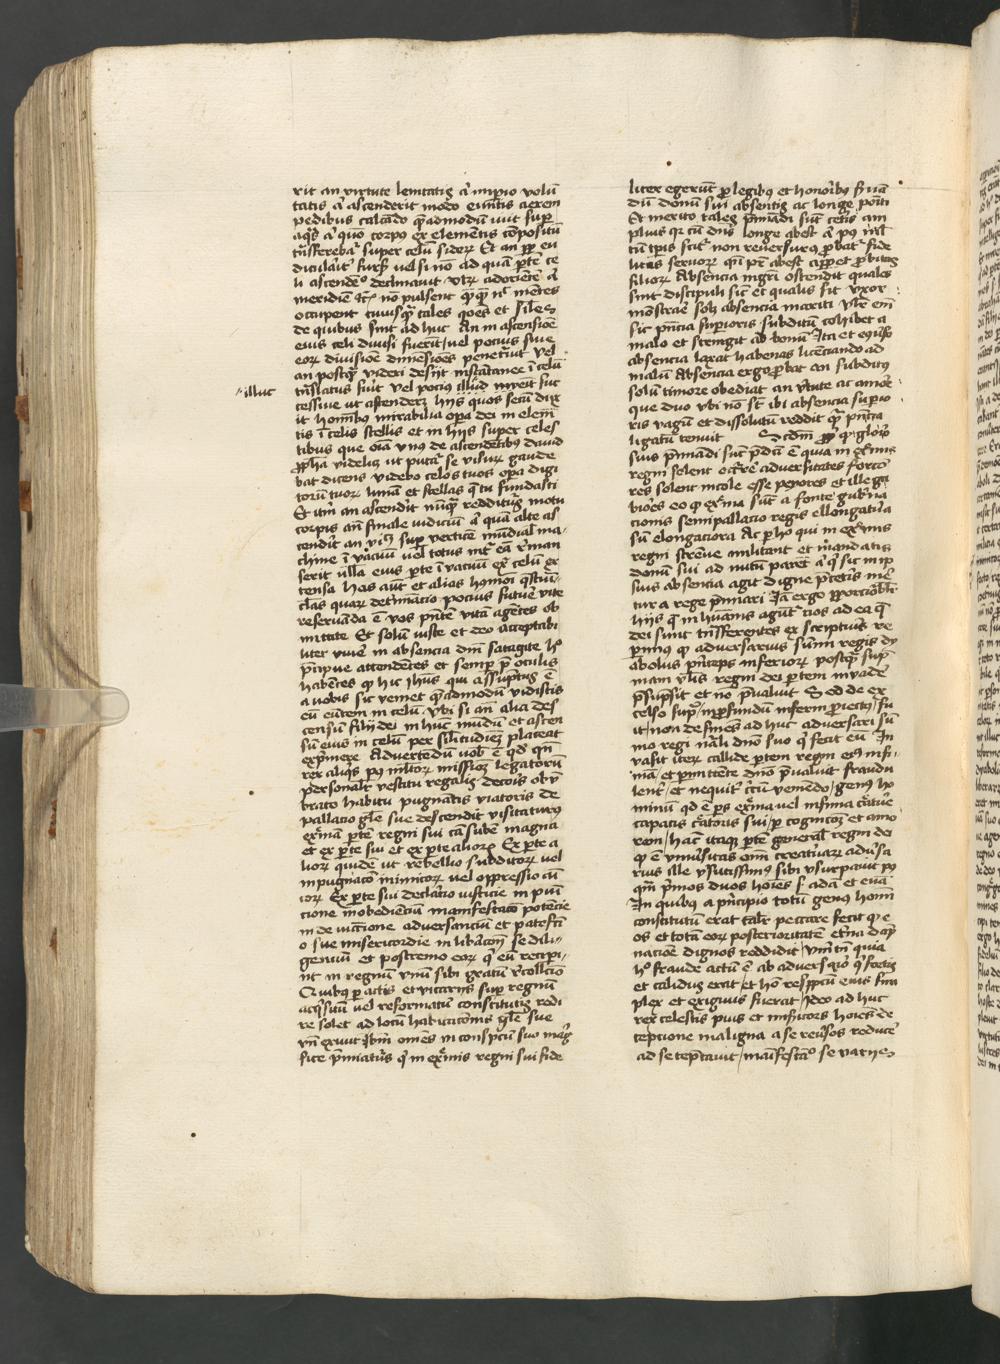 rit an virtute lenitatis an imperio volun
tatis an ascenderit modo euntis aerem
pedibus calcando quemadmodum iuit super
aquas an quo corpus ex elementis compositum
transferebatur super celum siderum Et an per
diculariter sursum vel si non ad quam partem ce
li ascendendo declinauit
meridiem etc non pulsent quamquam mentes
occupent tales questiones et similes
de quibus sunt ad huc An in ascensione
eius celi diuisi fuerint vel pocius sine
eorum diuisione dimensiones penetrauit vel
an postquam videri desijt instantanee in celum
illuc
translatus fuit vel pocius illud iuerit suc
cessiue ut ascenderet hijs quos secum dux
it hominibus mirabilia opera dei in elemen
tis in celis stellis et in hijs super celes
tibus que omnia vnus de ascendentibus dauid
propheta videlicet ut putatur se visurum gaude
bat dicens videbo celos tuos opera digi
torum tuorum lunam et stellas que tu fundasti
Et iterum an ascendit numquam rediturus motu
corporis ante finale iudicium an quam alte as
cendit an super verticem mundialis ma
chine in vacuum vel totus intra eam reman
serit vlla eius parte in vacuum extra celum ex
tensa Has autem et alias huiusmodi questiun
culas quarum determinacio pocius future vite
reseruanda est vos presentem vitam agentes ob
mittite Et solum iuste et deo acceptabi
liter viuere in absencia domini satagite hoc
precipue attendentes et semper pre oculis
habentes quod hic ihesus qui assumptus est
a vobis sic veniet quemadmodum vidistis
eum euntem in celum Vbi si ante alia des
censum filij dei in hunc mundum et ascen
sum eius in celum per similitudinem placeat
exprimere Aduertendum vobis est quod quando
rex aliquis post multorum missionem legatorum
personaliter vestitu regalis decoris ob vm
brato habitu pugnantis viatoris de
pallacio glorie sue descendit visitaturus
extremam partem regni sui causam subest magna
et ex parte sui et ex parte aliorum Ex parte a
liorum quidem ut rebellio subditorum vel
inpugnacio inimicorum vel oppressio ciui
um Ex parte sui declaracio iusticie in puni
cione inobediencium manifestacio potencie
in deuictione aduersancium et patefacti
o sue misericordie in liberacione se dili
gencium et postremo eorum qui eum recepi
unt in regnum vnum sibi gratum recollectio
Quibus peractis et vicarijs super regnum
acquisitum vel reformatum constitutis redi
re solet ad locum habitacionis glorie sue
vnde exiuit Vbi omnes in conspectu suo magni
fice premiaturus qui in extremis regni sui fide
liter egerunt pro legibus et honoribus seruan
dum domini sui absentis ac longe positi
Et merito tales premiandi sunt ceteris am
plius quia cum dominus longe abest an post mul
tum temporis sicut non reuersurus probatur fide
litas seruorum quando pater abest aperte probitas
filiorum Absencia magistri ostendit quales
sint discipuli sunt et qualis sit vxor
monstrare solet absencia mariti Vbi enim
sic presencia superioris subditum cohibet a
malo et stringit ad bonum Ita et equus
absencia laxat habenas licenciando ad
malum Absencia ergo probat an subditus
solum timore obediat an virtute ac amore
que duo vbi non sunt ibi absencia superio
ris vagum et dissolutum reddit quem presencia
ligatum tenuit Secundum quod glorio
sius premiandi sunt predicti est quia in extremis
regni solent occurrere aduersitates forcio
res solent incole esse peiores et illegali
biores eo quod extrema sunt a fonte guberna
cionis seu pallacio regis ellongatiua
sunt elongaciora Ac per hoc qui in extremis
regni strenue militant et mandatis
domini sui ad nutum parent an qui sic in ip
sius absencia agit digne pre ceteris me
retur a rege premiari Iam ergo proporcionabiliter
hijs que in humanis agunt nos ad ea que
dei sunt transferentes ex scripturis re
perimus quod aduersarius summi regis dy
abolus princeps inferiorum postquam supre
mam vtilis regni dei partem inuadere
presumpsit et non preualuit Sed de ex
celso supremo in profundum inferni proiectus fu
it non desinens ad huc aduersari sum
mo regi naturali domino suo qui fecit eum In
vasit iterum callide partem regni eius infi
mam et permittente domino preualuit fraudu
lenter et nequiter circumueniendo genus hu
manum quod est pars extrema vel infima creature
capacis creatoris sui per cognicionem et amo
rem hanc itaque partem generalis regni dei
quod est vniuersitas omnium creaturarum aduersa
rius ille versutissimus sibi vsurpauit post
quam primos duos homines scilicet adam et euam
In quibus a principio totum genus hominum
constitutum erat taliter peccare fecit quod e
os et totam eorum posterioritatem eterna damp
nacione dignos reddidit Verum tamen quia
hoc fraude actum est ab aduersario qui fortis
et calidus erat et homo respectu eius sim
plex et exiguus fuerat Ideo ad huc
rex celestis pius et misericors homines de
cepcione maligna a se reuersos reducere
ad se temptauit manifestando se varijs